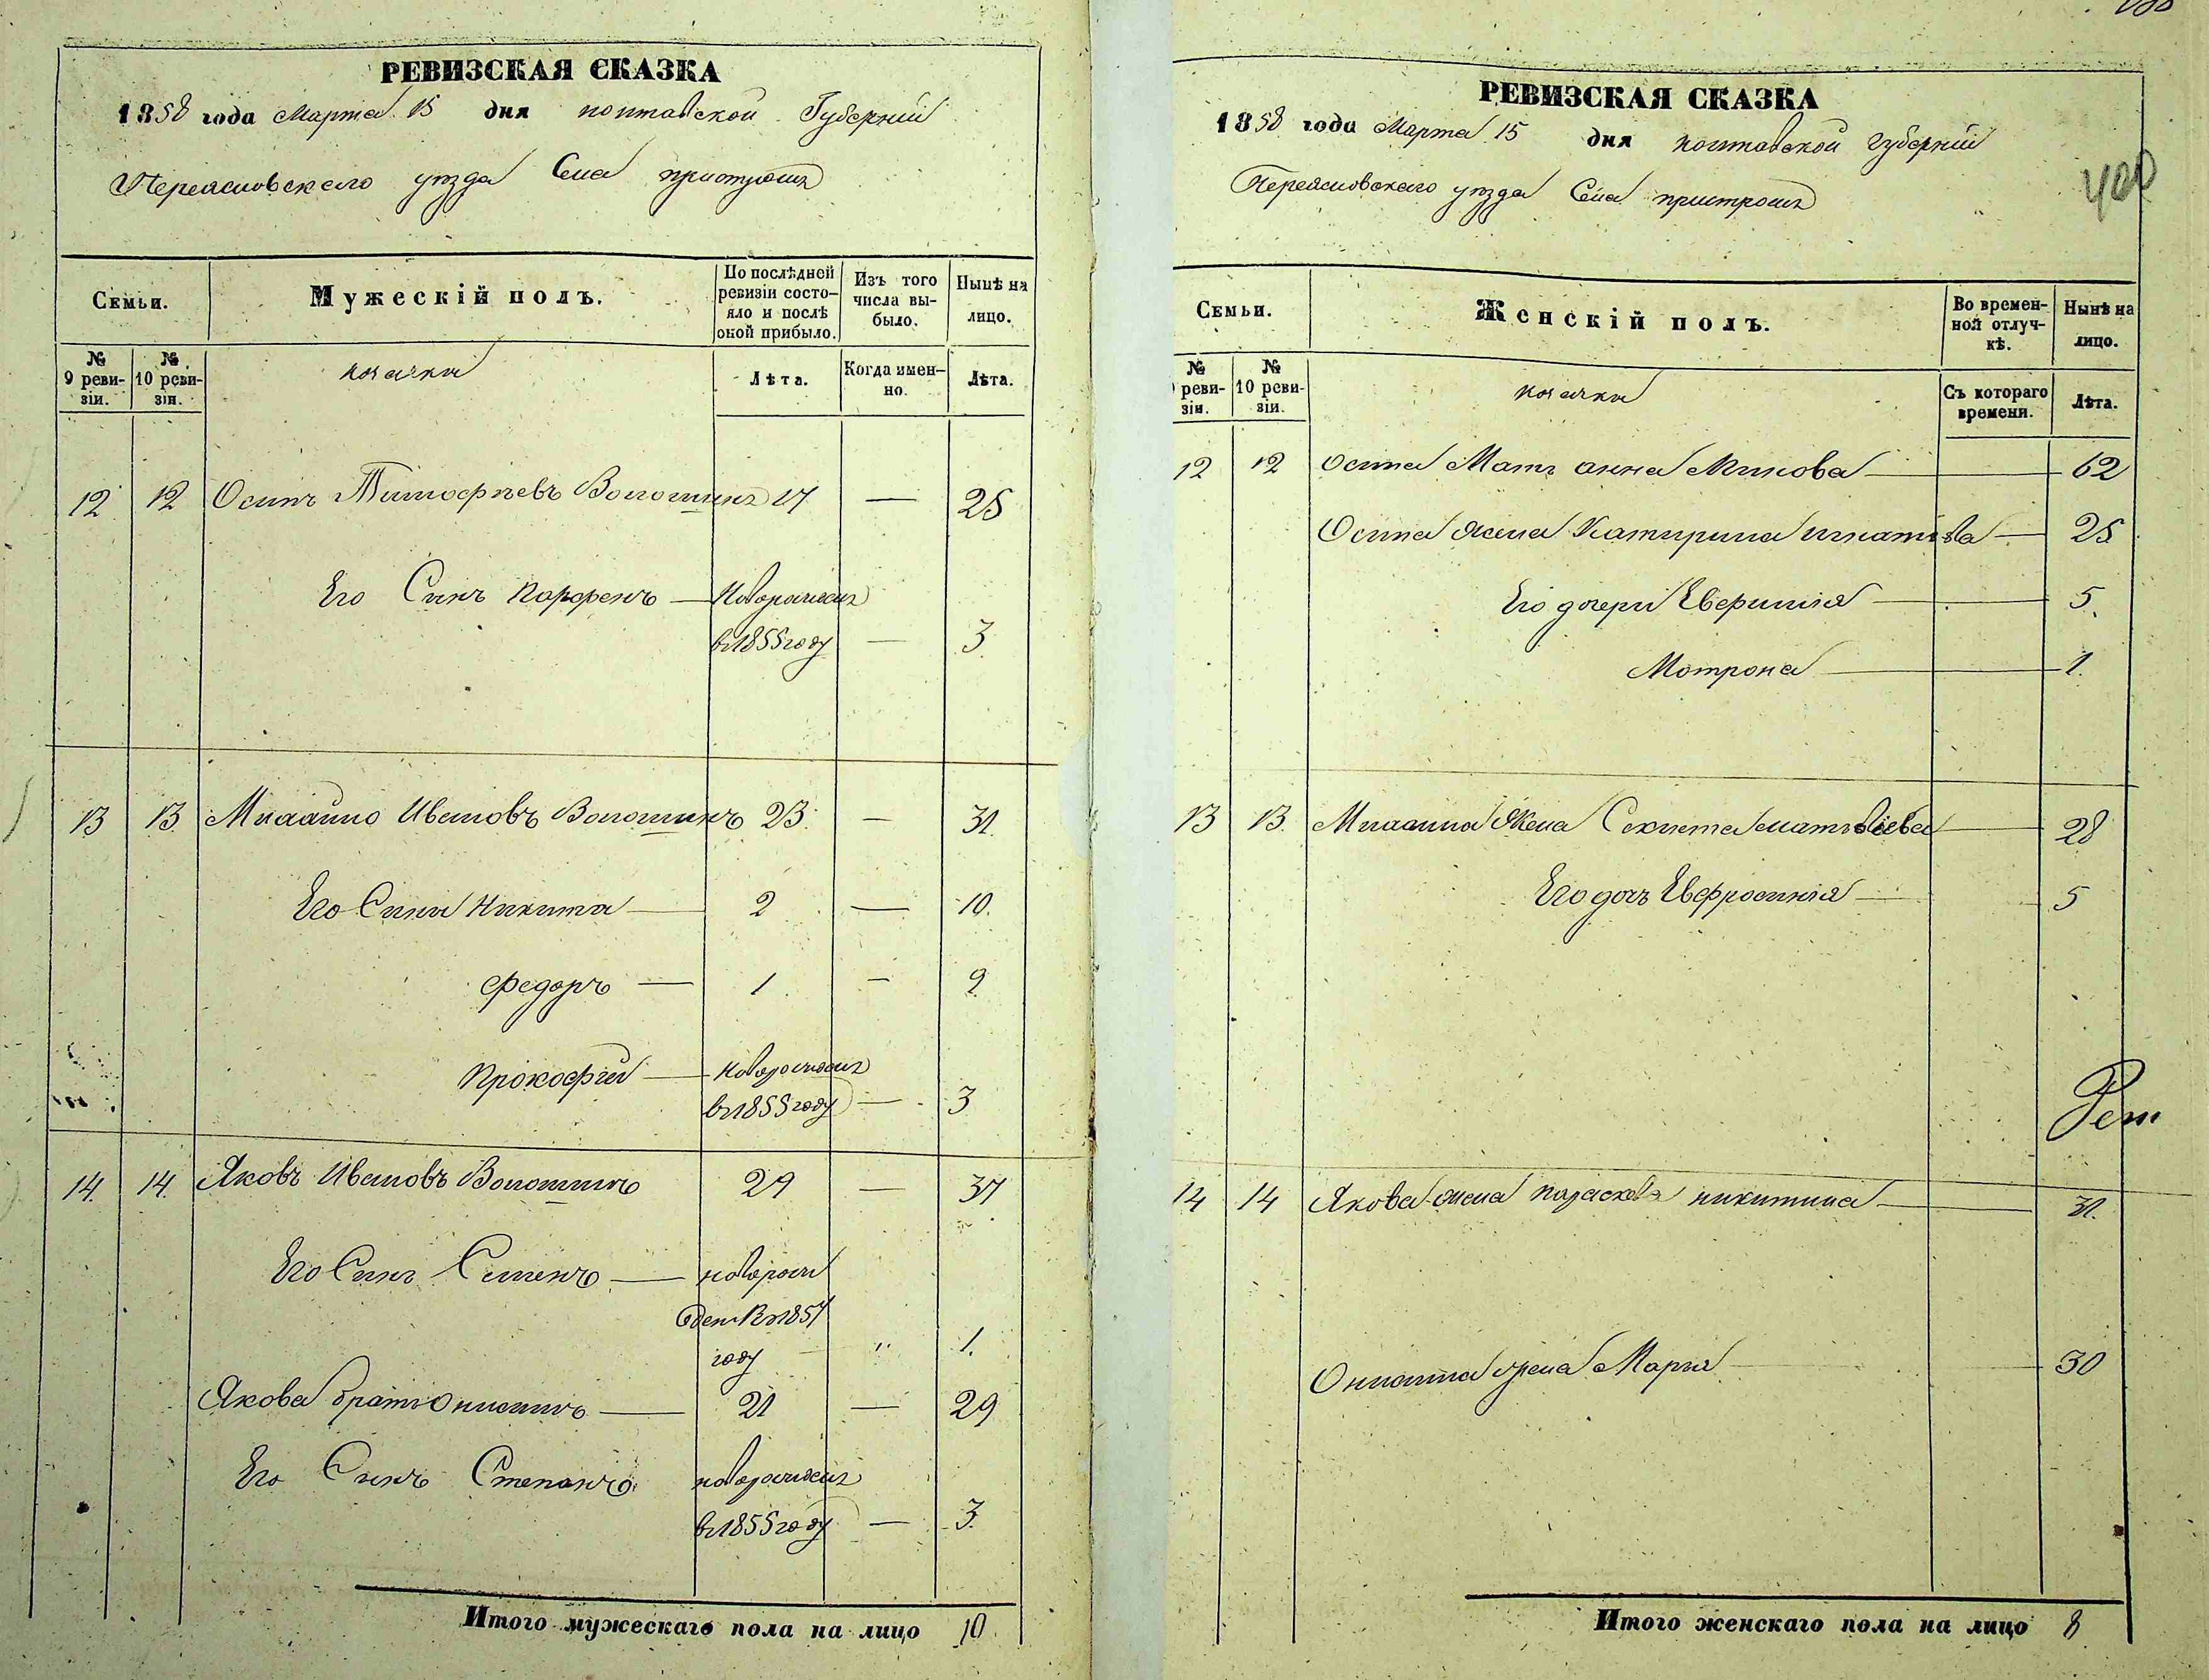 РЕВИЗСКАЯ СКАЗКА
1858 года Марта 15 дня полтавской Губерніи
Переясловского уѣзда Села пристромъ
Семьи.
Мужескій полъ.
По послѣдней ревизіи состо-
яло и послѣ
оной прибыло.
Изъ того
числа вы-
было.
Нынѣ на
лицо.
№
9 реви-
зіи.
№
10 реви-
зіи.
козаки
Лѣта.
Когда имен-
но.
Лѣта.
12 12 Осипъ Тимофѣевъ Волошинъ 17 — 25
Его Синъ Парфенъ — Новорожденъ
въ 1855 году — 3
13 13 Михайло Ивановъ Волошинъ 23 — 31
Его Сини Никита — 2 — 10.
Федоръ — 1 — 9
Прокофій — новорожденъ
въ 1855 году — 3
14 14 Яковъ Ивановъ Волошинъ 29 — 37
Его Синъ Семенъ — новорож
денъ въ 1857
году " 1.
Якова братъ — 21 — 29
Его Синъ Степанъ новорожденъ
въ 1855 году — 3.
Итого мужескаго пола на лицо 10.
РЕВИЗСКАЯ СКАЗКА
1858 года Марта 15 дня полтавской губерніи
Переясловского уѣзда Села пристромъ
400
Семьи.
Женскій полъ.
Во времен-
ной отлуч-
кѣ.
Нынѣ на
лицо.
№
реви-
зіи.
№
10 реви-
зіи.
козачки
Съ котораго
времени.
Лѣта.
12 12 Осипа Мать анна Климова — 62
Осипа жена Катирина игнатова — 25
Его дочери — 5.
Мотрона — 1.
13 13 Михаила Жена матвѣіева — 28
Его дочь Евфросинія — 5
14 14 Якова жена параскева никитина — 31.
жена Марья — 30
Итого женскаго пола на лицо 8